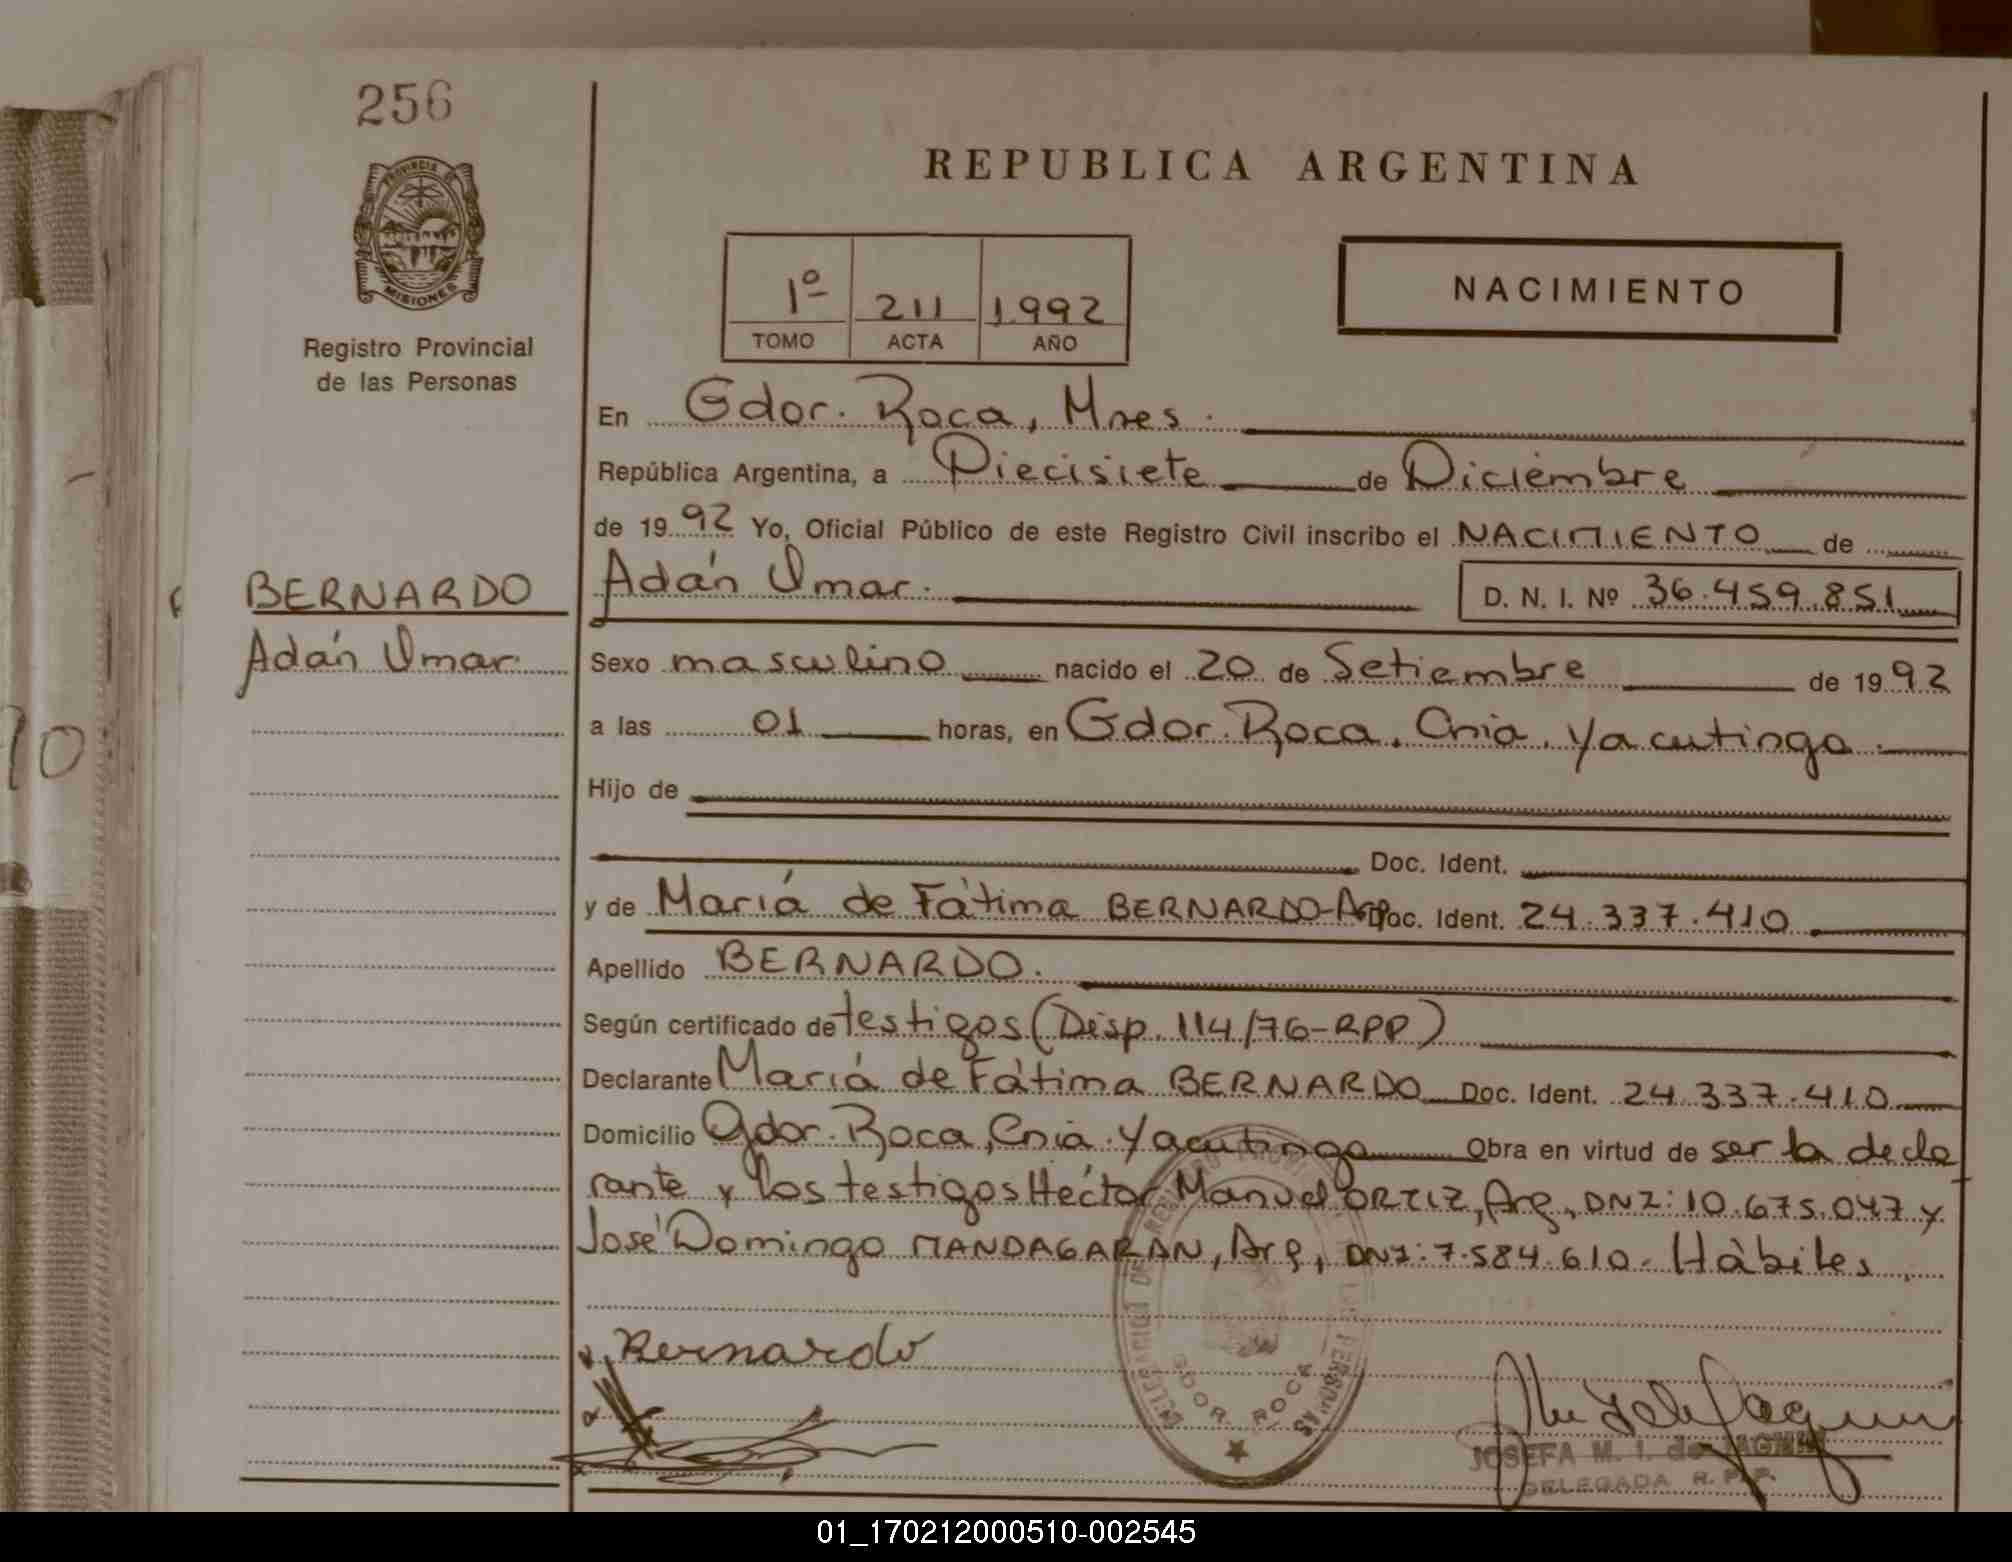 256
PROVINCIA DE
MISIONES
Registro Provincial
de las Personas
REPUBLICA ARGENTINA
1º 211 1992
TOMO ACTA AÑO
NACIMIENTO
En Gdor. Roca, Mnes.
República Argentina, a Diecisiete de Diciembre
de 1992 Yo, Oficial Público de este Registro Civil inscribo el NACIMIENTO de
BERNARDO
Adán Omar.
D. N. I. Nº 36.459.851
Adán Omar.
Sexo masculino nacido el 20 de Setiembre de 1992
a las 01 horas, en Gdor. Roca, Cnia. Yacutinga.
Hijo de
Doc. Ident.
y de María de Fátima BERNARDO-Arg. Doc. Ident. 24.337.410
Apellido BERNARDO.
Según certificado de testigos (Disp. 114/76-RPP)
Declarante María de Fátima BERNARDO Doc. Ident. 24.337.410
Domicilio Gdor. Roca, Cnia. Yacutinga Obra en virtud de ser la decla
rante y los testigos Héctor Manuel ORTIZ, Arg, DNI: 10.675.047 y
José Domingo MANDAGARAN, Arg, DNI: 7.584.610. Hábiles.
Bernardo
DELEGACION DE REGISTRO PROVINCIAL DE LAS PERSONAS
GDOR. ROCA
JOSEFA M. I. de
DELEGADA R. P. P.
01_170212000510-002545
10